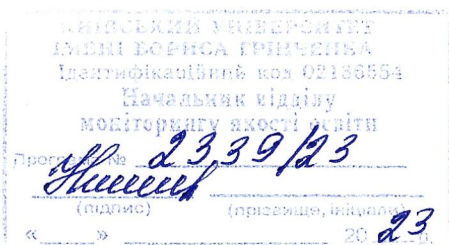 КИЇВСЬКИЙ УНІВЕРСИТЕТ
ІМЕНІ БОРИСА ГРІНЧЕНКА
Ідентифікаційний код 02136554
Начальник відділу
моніторингу якості освіти
Програма № 2339/23
(підпис) (прізвище, ініціали)
«___» ___ 2023